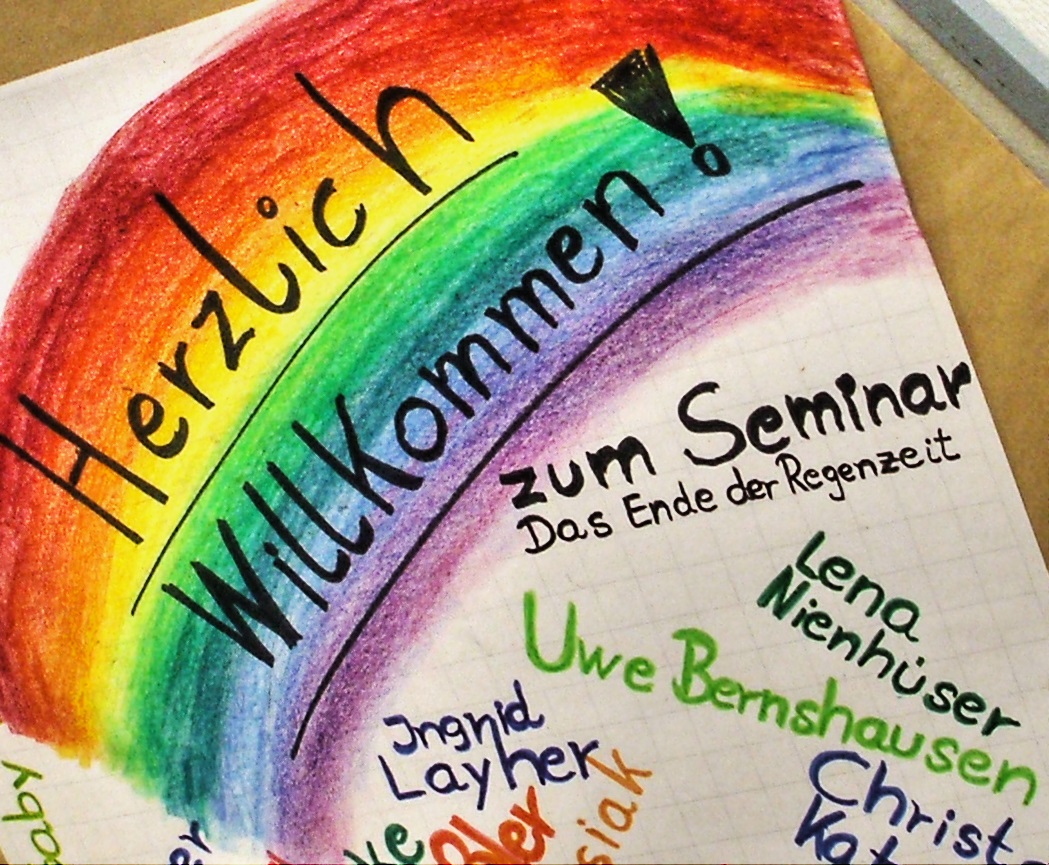 Herzlich
Willkommen!
zum Seminar
Das Ende der Regenzeit
Lena
Nienhüser
Uwe Bernshausen
Ingrid
Layher
Christ
Kat
aby
er
ke
siak